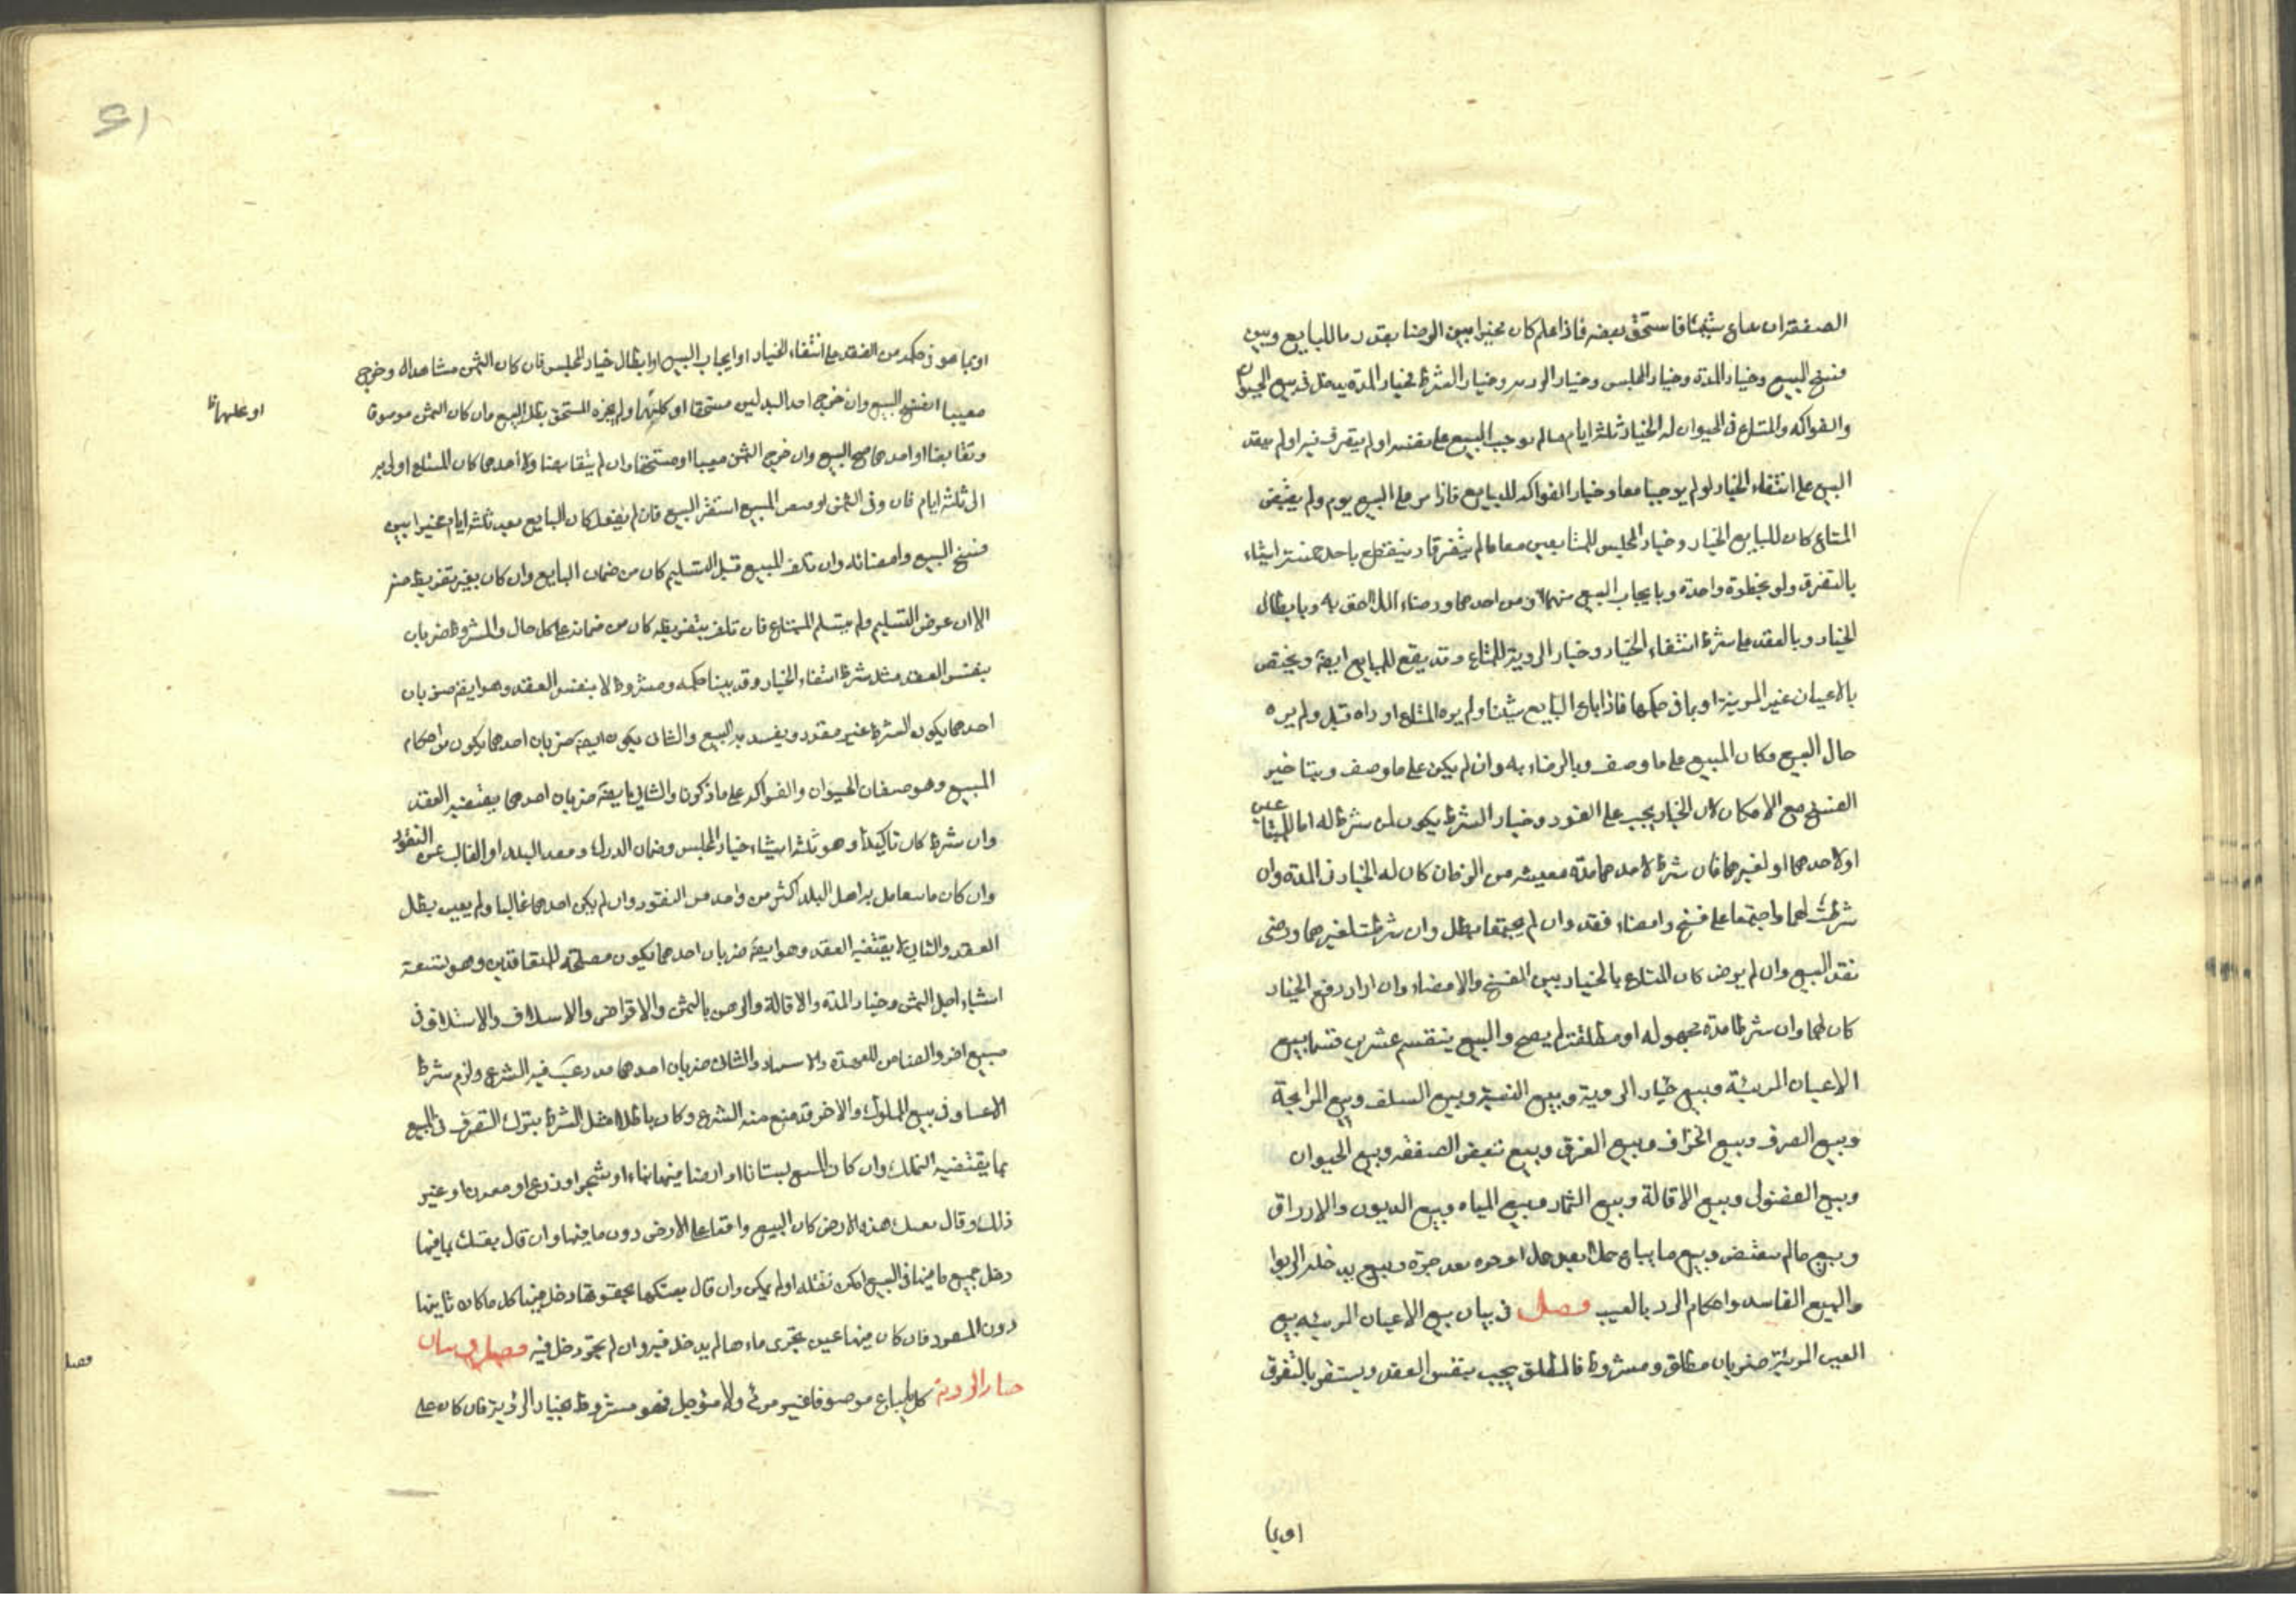 الصفقة ان باع شيئا فاستحق بعضه فاذا علم كان مخيرا بين الرضا بقدر ما للبايع وبين
فسخ البيع وخيار المدة وخيار المجلس وخيار الروية وخيار الشرط فخيار المدة يدخل في بيع الحيوان
والفواكه والمبتاع في الحيوان له الخيار ثلثة ايام ما لم يوجب البيع على نفسه او لم يتصرف فيه او لم يعقد
البيع على انتفاء الخيار او لم يوجبا معا وخيار الفواكه للبايع فاذا مر على البيع يوم ولم يقبض
المتاع كان للبايع الخيار وخيار المجلس للمتبايعين معا ما لم يتفرقا وينقطع باحد خمسة اشياء
بالتفرق ولو بخطوة واحدة وبايجاب البيع منهما ومن احدهما ورضاء الاخر به وبابطال
الخيار وبالعقد على شرط انتفاء الخيار وخيار الروية للمبتاع وقد يقع للبايع ايضا ويختص
بالاعيان غير المرئية او بما في حكمها فاذا باع البايع شيئا ولم يره المبتاع او راه قبل ولم يره
حال البيع وكان المبيع على ما وصف وبالرضاء به وان لم يكن على ما وصف وبتاخير
الفسخ مع الامكان لان الخيار يجب على الفور وخيار الشرط يكون لمن شرط له اما للمتبايعين
او لاحدهما او لغيرهما فان شرط لاحدهما مدة معينة من الزمان كان له الخيار في المدة وان
شرطت لهما واجتمعا على فسخ وامضاء نفذ وان لم يجتمعا بطل وان شرطت لغيرهما ورضى
نفذ البيع وان لم يرض كان المبتاع بالخيار بين الفسخ والامضاء وان اراد رفع الخيار
كان لهما وان شرطا مدة مجهولة او مطلقة لم يصح والبيع ينقسم عشرين قسما بيع
الاعيان المرئية وبيع خيار الروية وبيع النسية وبيع السلف وبيع المرابحة
وبيع الصرف وبيع الجزاف وبيع الغرر وبيع تبعيض الصفقة وبيع الحيوان
وبيع الفضولى وبيع الاقالة وبيع الثمار وبيع المياه وبيع الديون والارزاق
وبيع ما لم يقبض وبيع ما يباع حملا بعد حمل او جزه بعد جزة وبيع يدخله الربوا
والبيع الفاسد واحكام الرد بالعيب فصل في بيان بيع الاعيان المرئية بيع
العين المرئية ضربان مطلق ومشروط فالمطلق يجب بنفس العقد ويستقر بالتفرق
او بما
او بما هو في حكمه من العقد على انتفاء الخيار او ايجاب البيع او ابطال خيار المجلس فان كان الثمن مشاهدا وخرج
معيبا انفسخ البيع وان خرج احد البدلين مستحقا او كلاهما ولم يجزه المستحق بطل البيع وان كان الثمن موصوفا
او عليهما ظ
وتقابضا او احدهما صح البيع وان خرج الثمن معيبا او مستحقا وان لم يتقابضا ولا احدهما كان المبتاع اولى به
الى ثلثة ايام فان وفى الثمن او بعض المبيع استقر البيع فان لم يفعل كان البايع بعد ثلثة ايام مخيرا بين
فسخ البيع وامضائه وان تلف المبيع قبل التسليم كان من ضمان البايع وان كان بغير تفريط منه
الا ان عرض التسليم ولم يتسلم المبتاع فان تلف بتفريطه كان من ضمانه على كل حال والمشروط ضربان
بنفس العقد مثل شرط انتفاء الخيار وقد بينا حكمه ومشروط لا بنفس العقد وهو ايضا ضربان
احدهما يكون الشرط غير مقدور ويفسد به البيع والثاني يكون ايضا ضربان احدهما يكون من احكام
المبيع وهو صفان الحيوان والفواكه على ما ذكرنا والثاني ايضا ضربان احدهما يقتضيه العقد
وان شرط كان تاكيدا وهو ثلثة اشياء خيار المجلس وضمان الدرك ونقد البلد او الغالب من النقود
وان كان ما يتعامل به اهل البلد اكثر من واحد من النقود وان لم يكن احدهما غالبا ولم يعين بطل
العقد والثاني لا يقتضيه العقد وهو ايضا ضربان احدهما يكون مصلحة للمتعاقدين وهو تسعة
اشياء اجل الثمن وخيار المدة والاقالة والرهن بالثمن والاقراض والاسلاف والاستلاف في
مبيع اخر والضامن للعهدة والاشهاد والثاني ضربان احدهما قد رغب فيه الشرع ولزم شرط
الاعتاق في بيع المملوك والاخر قد منع منه الشرع وكان باطلا مثل الشرط بترك التصرف في المبيع
بما يقتضيه التملك وان كان المبيع بستانا او ارضا فيها نماء او شجر او زرع او معدن او غير
ذلك وقال بعتك هذه الارض كان البيع واقعا على الارض دون ما فيها وان قال بعتك بما فيها
دخل جميع ما فيها في البيع امكن نقله او لم يمكن وان قال بعتكها بحقوقها دخل فيها كل ما كان ثابتا
دون المعود فان كان فيها عين تجرى ماءها لم يدخل فيه وان لم تجر دخل فيه فصل في بيان
خيار الروية كل ما يباع موصوفا غير مرئى ولا مؤجل فهو مشروط بخيار الروية فان كان على
فصل